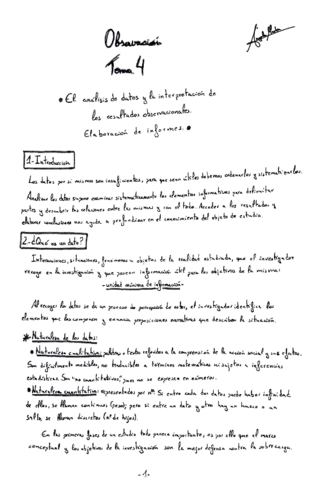 Observación
Tema 4
• El análisis de datos y la interpretación de
los resultados observacionales.
Elaboración de informes. •
1-Introducción
Los datos por si mismos son insuficientes, para que sean útiles debemos ordenarlos y sistematizarlos.
Analizar los datos supone examinar sistemáticamente los elementos informativos para delimitar
partes y descubrir las relaciones entre las mismas y con el todo. Acceder a los resultados y
obtener conclusiones nos ayuda a profundizar en el conocimiento del objeto de estudio.
2-¿Qué es un dato?
Interacciones, situaciones, fenómenos u objetos de la realidad estudiada, que el investigador
recoge en la investigación y que poseen información útil para los objetivos de la misma:
-unidad mínima de información-
Al recoger los datos se da un proceso de percepción de estos, el investigador identifica los
elementos que los componen y enuncia proposiciones narrativas que describan la situación.
* Naturaleza de los datos:
• Naturaleza cualitativa: palabras o textos referidos a la comprensión de la acción social y sus efectos.
Son difícilmente medibles, no traducibles a términos matemáticos ni sujetos a inferencias
estadísticas. Son "no cuantitativos", pues no se expresan en números.
• Naturaleza cuantitativa: representados por nº. Si entre cada dos datos puede haber infinidad
de ellos, se llaman continuos (peso); pero si entre un dato y otro hay un hueco o un
salto, se llaman discretos (nº de hijos).
En las primeras fases de un estudio todo parece importante, es por ello que el marco
conceptual y los objetivos de la investigación son la mejor defensa contra la sobrecarga.
-1-